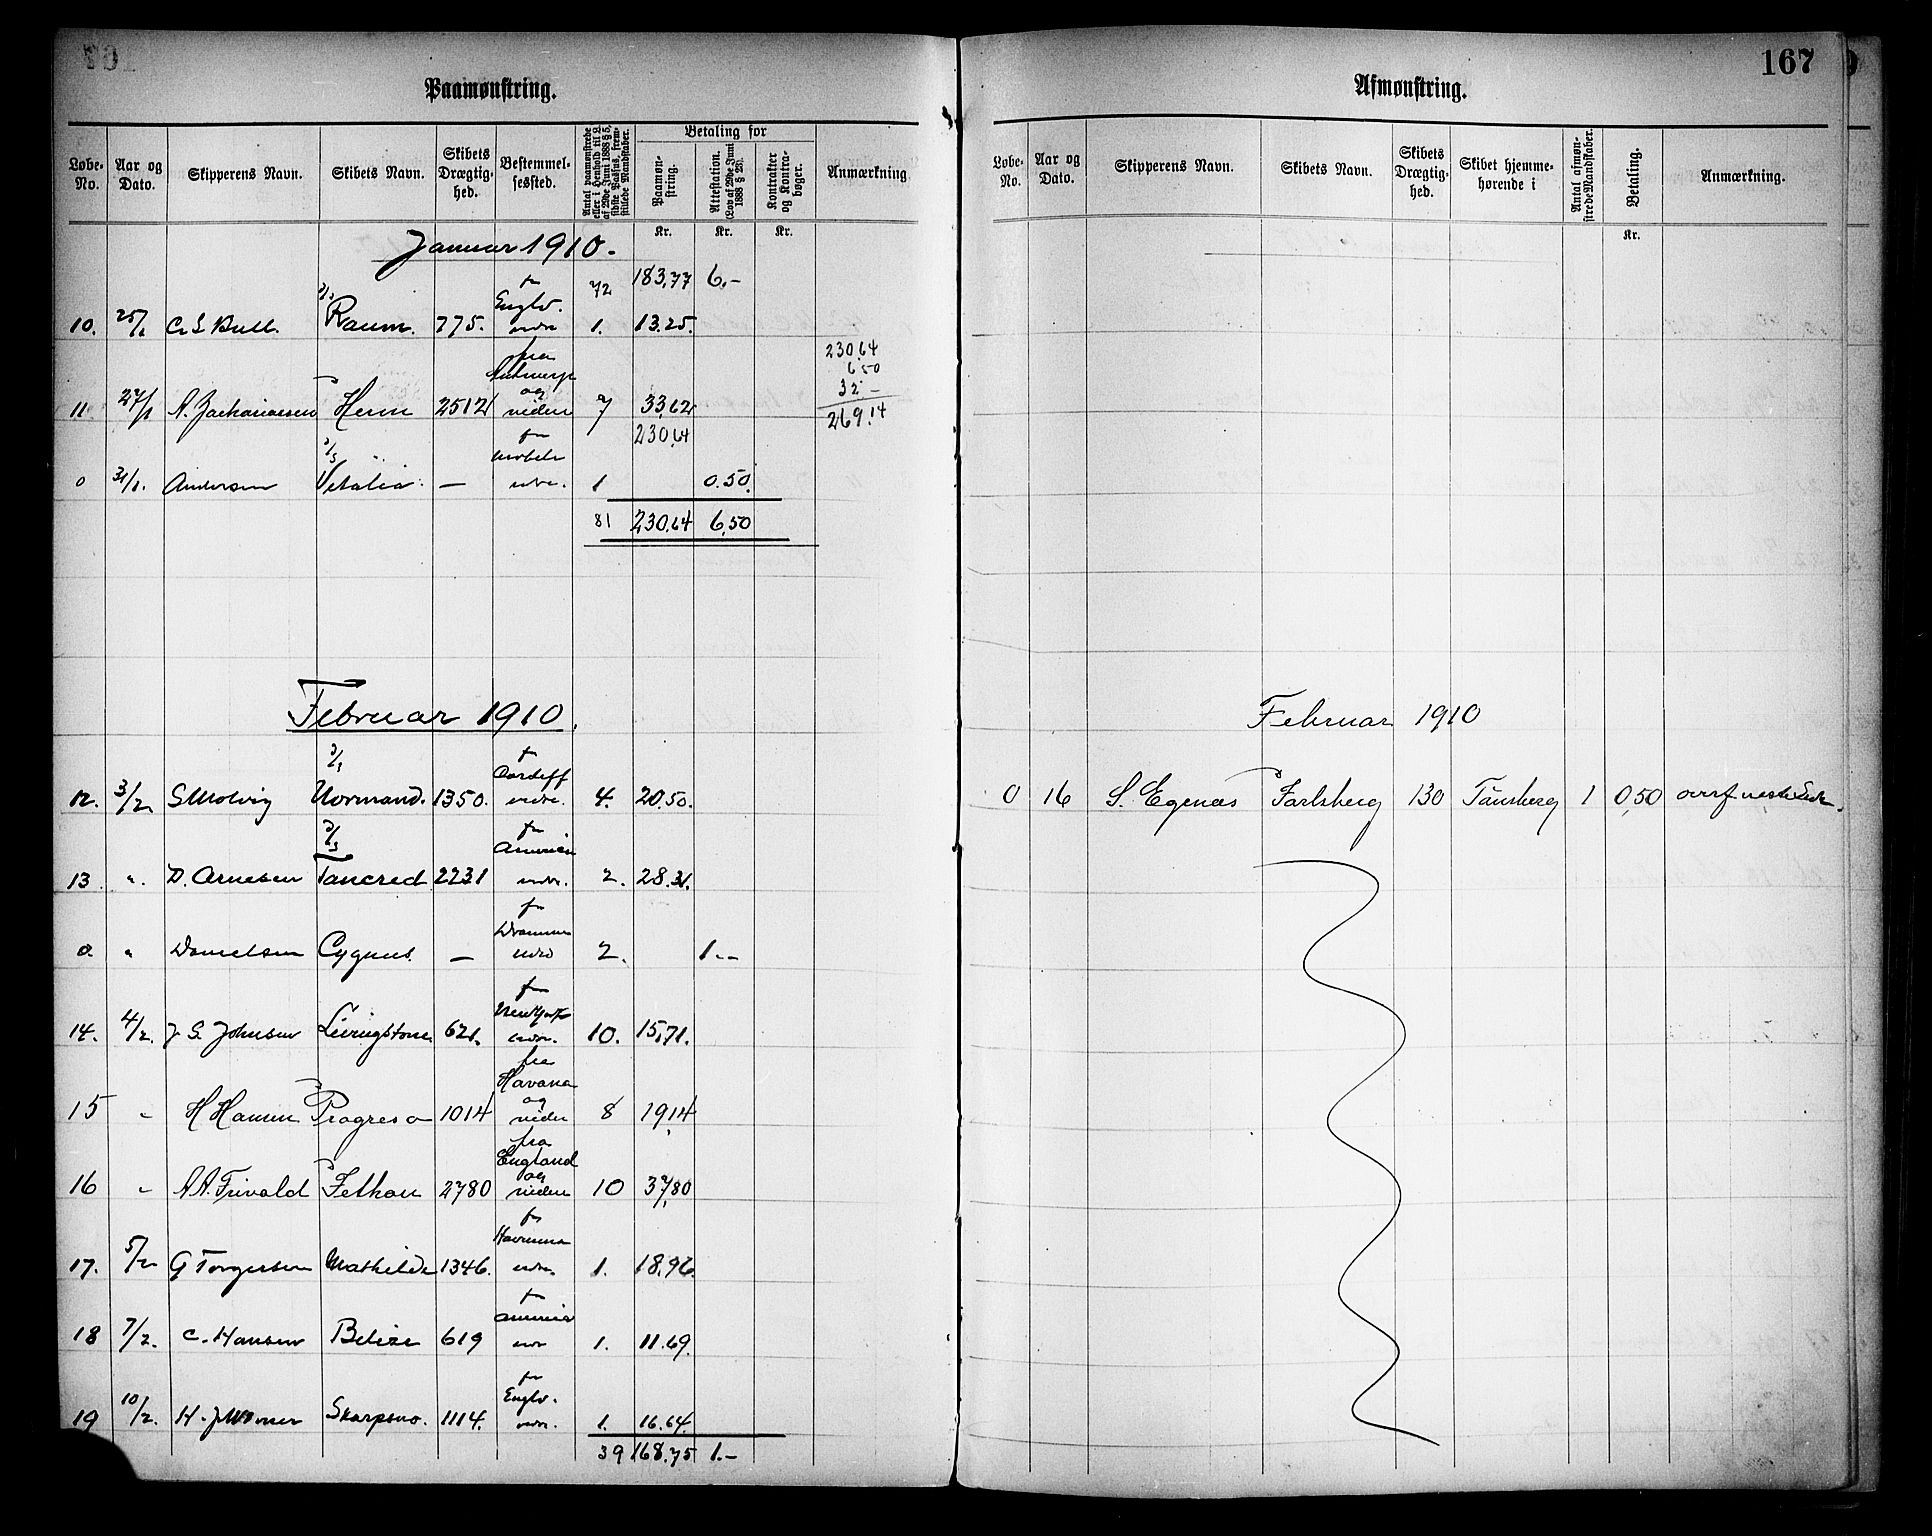 70
Paamønstring.
Løbe-No. Aar og Dato. Skipperens Navn. Skibets Navn. Skibets Drægtig-hed. Bestemmel-sessted. Antal paamønstrede eller i Henhold til L. af 29de Juni 1888 § 5, sidste Passus, frem-stillede Mandskaber. Betaling for Paamøn-string. Attestation. (Lov af 29de Juni 1888 § 28). Kontrakter og Kontra-bøger. Anmærkning
Kr. Kr. Kr.
Januar 1910.
72 183,77 6.-
10. 25/1 C. S. Bull. D/S Raum. 775. fr Engld. vidre 1. 13.25.
230,64
6 50
32 -
269,14
11 27/1 A. Zachariassen Herm 2512 fra Antwerp og videre 7 33,62
230,64
0 31/1. Andersen D/S Vitalia. — fr Mobile vidre. 1 0.50.
81 230,64 6,50
Februar 1910.
12. 3/2 S Molvig D/S Normand. 1350. fr Cardiff vidre. 4. 20,50.
13 ". D. Arnesen D/S Tancred 2231 fr America vidre. 2. 28.31.
0. " Danielsen Cygnus. — fr Drammen vidre 2. 1.--
14. 4/2. J S. Johnsen Livingstone 621. fr New York vidre. 10. 15,71.
15 " H Hansen Progreso 1014 fra Havana og videre 8 19,14
16 " A A. Trivald 2780 fra England og videre 10 37,80
17. 5/2 G Torgersen Mathilde 1346. fr vidre. 1. 18.96.
18 7/2. C. Hansen Belize 619 fr America vidr 1. 11.69.
19 10/2. H. J. Skarpsno. 1114. fr Engld. vidre. 1. 16.64.
39 168,75 1.-
167
Afmønstring.
Løbe-No. Aar og Dato. Skipperens Navn. Skibets Navn. Skibets Drægtig-hed. Skibet hjemme-hørende i Antal afmøn-strede Mandskaber. Betaling. Anmærkning.
Kr.
Februar 1910
0 16 S. Egenæs Jarlsberg 130 Tønsberg 1 0,50 overf næste Side.